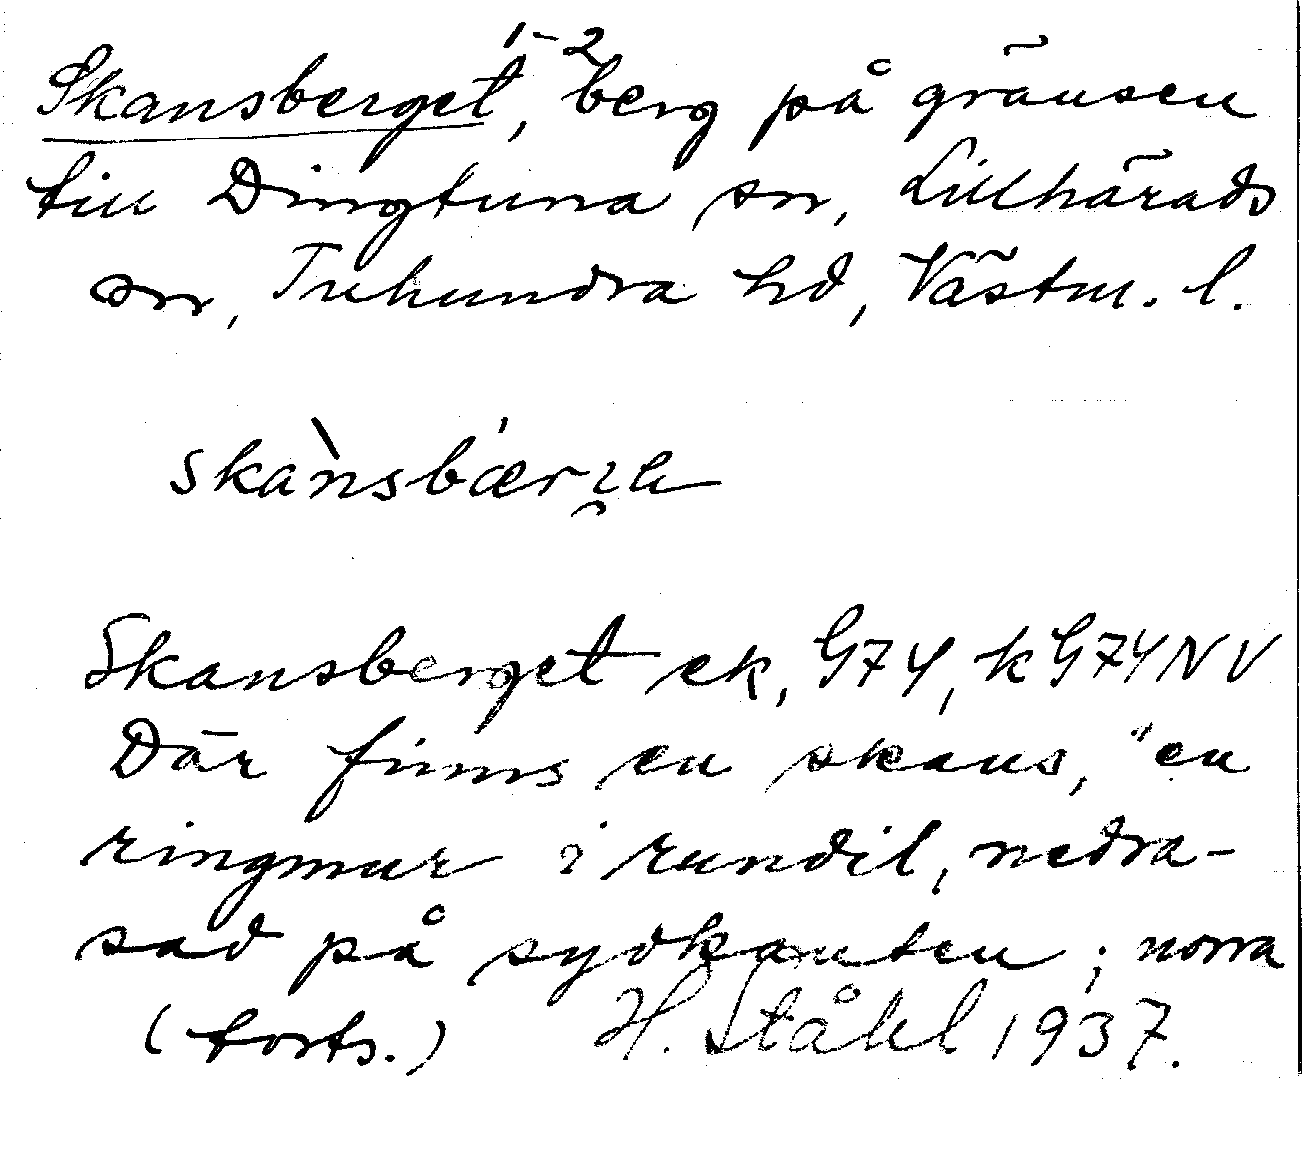 Skansberget, 1-2 berg på gränsen
till Dingtuna sn, Lillhärads
sn, Tuhundra hd, Västm. l.
Skansberget ek, G74, k G74NV
Där finns en skans, "en
ringmur i rundil, nedra-
sad på sydkanten; norra
(forts.) H. Ståhl 1937.